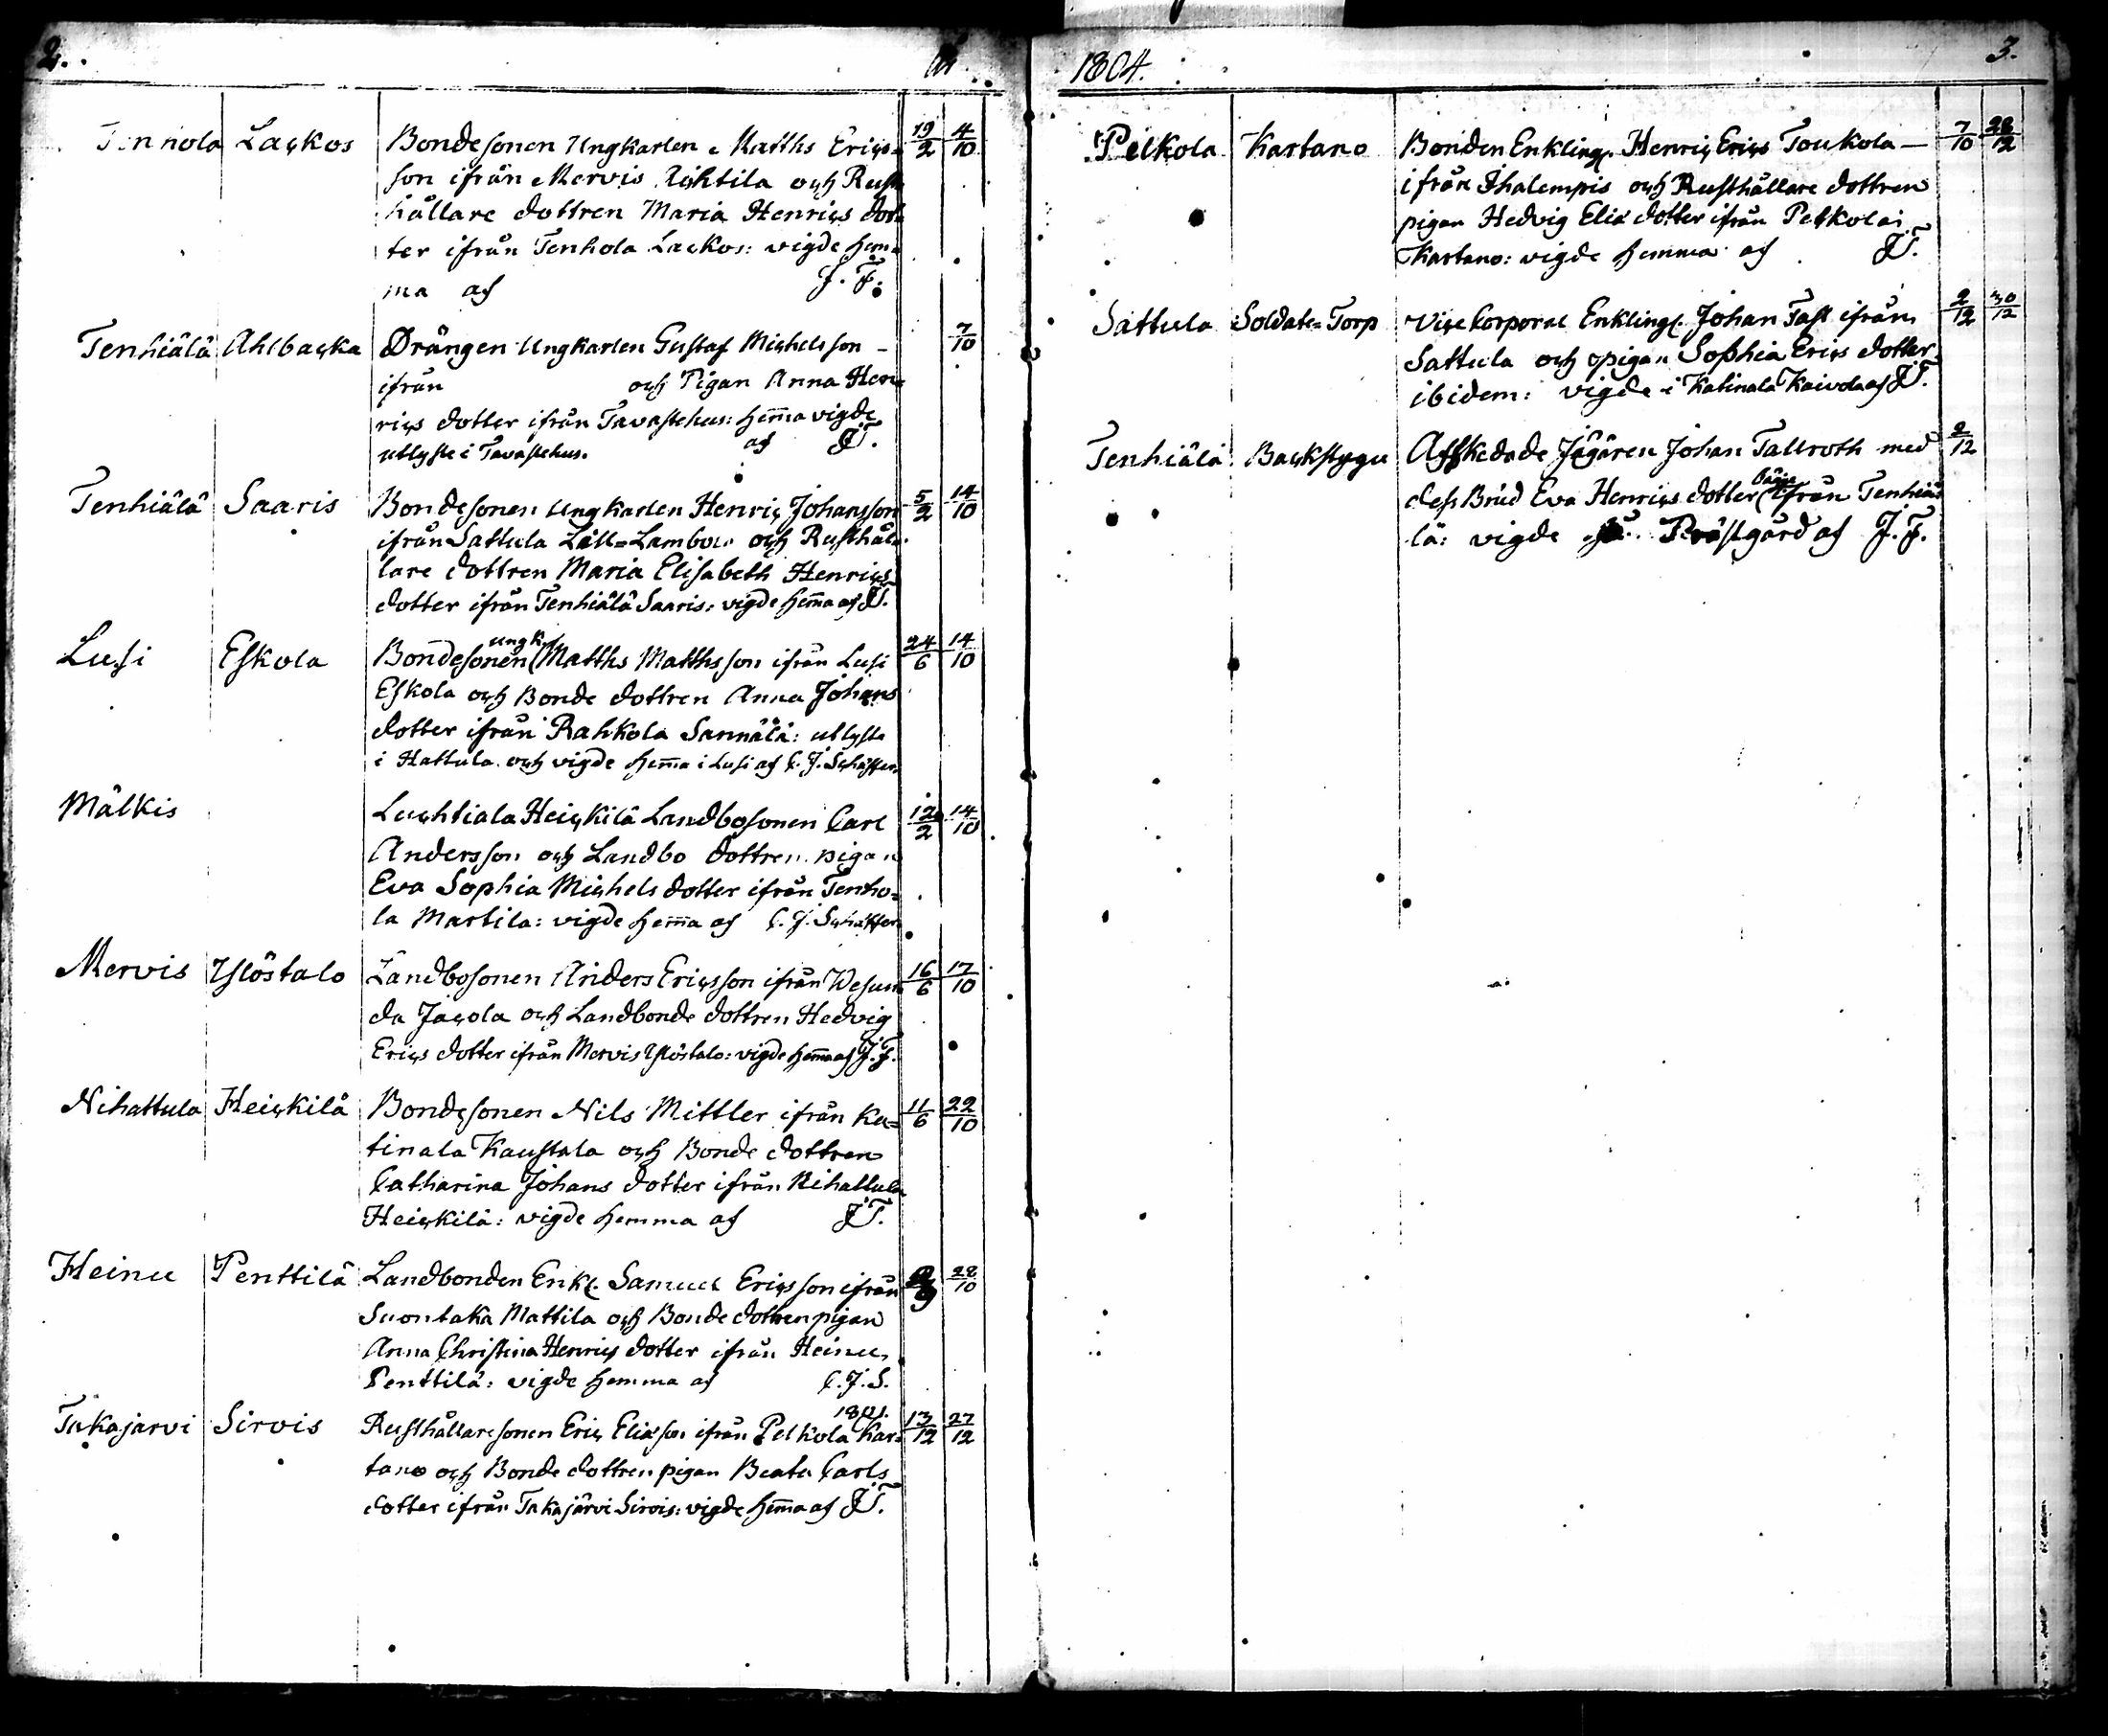 2.
1804.
3.
Tenhola Lackos Bondesonen Ungkarlen Matths Erics= 19/2 4/10
son ifrån Mervis och Rust=
hållare dottren Maria Henrics dot=
ter ifrån Tenhola Lackos: vigde hem=
ma af J. F.
Tenhiälä Ahlbacka Drängen Ungkarlen Gustaf Michelsson – 7/10
ifrån och Pigan Anna Hen=
rics dotter ifrån Tavastehus: hem̄a vigde
utlyste i Tavastehus. af JF.
Tenhiälä Saaris Bondesonen Ungkarlen Henric Johansson 5/2 14/10
ifrån Sattula Läll=Lambois och Rusthål=
lare dottren Maria Elisabeth Henrics
dotter ifrån Tenhiälä Saaris: vigde hem̄a af JF.
Lusi Eskola Bondesonen ungk. Matths Mathsson ifrån Lusi 24/6 14/10
Eskola och Bonde dottren Anna Johans
dotter ifrån Rahkola Sannälä: utlyste
i Hattula och vigde hem̄a i Lusi af C. J. Schäffer.
Mälkis Luchtiala Heickilä Landbosonen Carl 12/2 14/10
Andersson och Landbo dottren pigan
Eva Sophia Michels dotter ifrån Tenho=
la Martila: vigde hem̄a af C. J. Schäffer.
Mervis Ylöstalo Landbosonen Anders Ericsson ifrån Wesun= 16/6 17/10
da Jacola och Landbonde dottren Hedvig
Erics dotter ifrån Mervis Ylöstalo: vigde hem̄a af J. F.
Nihattula Heickilä Bondesonen Nils Mittler ifrån Ka= 11/6 22/10
tinala Kaustala och Bonde dottren
Catharina Johans dotter ifrån Nihattula
Heickilä: vigde hemma af JF.
Heinu Penttilä Landbonden Enkl. Samuel Ericsson ifrån 28/10
Suontaka Mattila och Bonde dottren pigan
Anna Christina Henrics dotter ifrån Heinu
Penttilä: vigde hemma af C. J. S.
Takajärvi Sirvis Rusthållaresonen Eric Eliæson ifrån Pelkola Kar= 13/12 27/12
tano och Bonde dottren pigan Beata Carls
dotter ifrån Takajärvi Sirvis: vigde hem̄a af JF.
Pelkola Kartano Bonden Enkling. Henric Erics Toukola – 7/10 28/12
ifrån Ihalempis och Rusthållare dottren
pigan Hedvig Eliæ dotter ifrån Pelkola
Kartano: vigde hemma af JF.
Sattula Soldate=Torp Vice Corporal Enkling. Johan Fast ifrån 2/12 30/12
Sattula och pigan Sophia Erics dotter
ibidem: vigde i Katinala Kaivola af JF.
Tenhiälä Backstugu Afskedade Jägaren Johan Tallroth med 2/12
dess Brud Eva Henrics dotter både ifrån Tenhiä=
lä: vigde Prästgård af J. F.